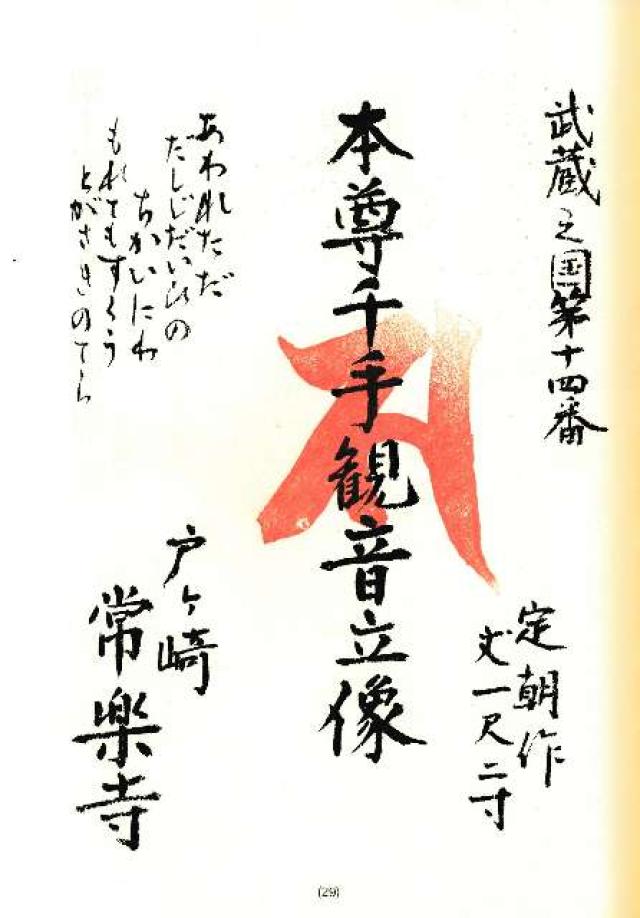 武蔵之国第十四番
定朝作
丈一尺二寸
本尊千手観音立像
あわれただ
だしじだいひの
ちかいにわ
もれてもすくう
とがさきのてら
戸ヶ崎
常楽寺
(29)